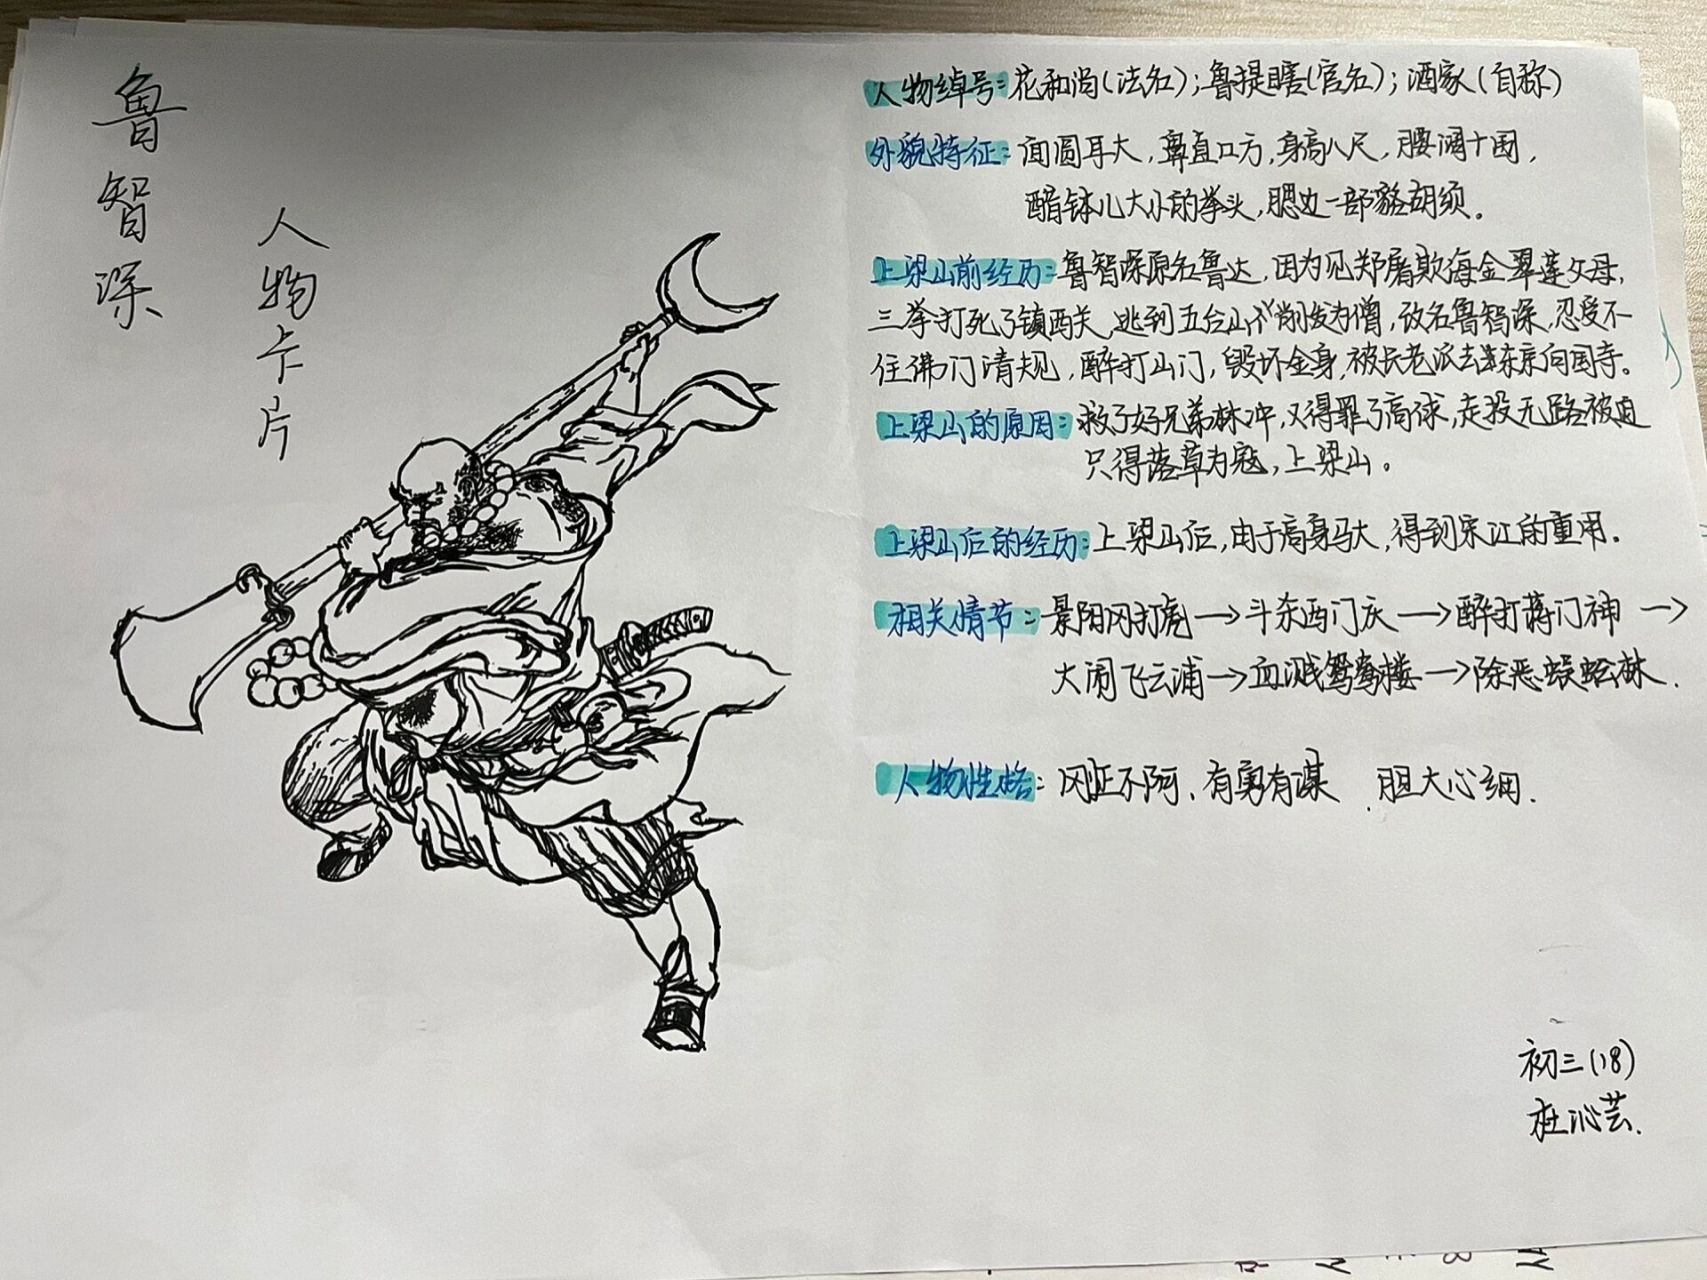 鲁智深
人物卡片
人物绰号:花和尚(法名);鲁提瞎(官名);洒家(自称)
外貌特征:面圆耳大,鼻直口方,身高八尺,腰阔十围,
醋钵儿大小的拳头,腮边一部貉胡须。
上梁山前经历:鲁智深原名鲁达,因为见郑屠欺侮金翠莲父母,
三拳打死了镇西关,逃到五台山削发为僧,改名鲁智深,忍受不
住佛门清规,醉打山门,毁坏金身,被长老派去东京向国寺。
上梁山的原因:救了好兄弟林冲,又得罪了高俅,走投无路被迫
只得落草为寇,上梁山。
上梁山后的经历:上梁山后,由于高身马大,得到宋江的重用。
相关情节:景阳冈打虎→斗东西门庆→醉打蒋门神→
大闹飞云浦→血溅鸳鸯楼→除恶蜈蚣林.
人物性格:刚正不阿、有勇有谋、胆大心细.
初三(18)
杜沁芸.